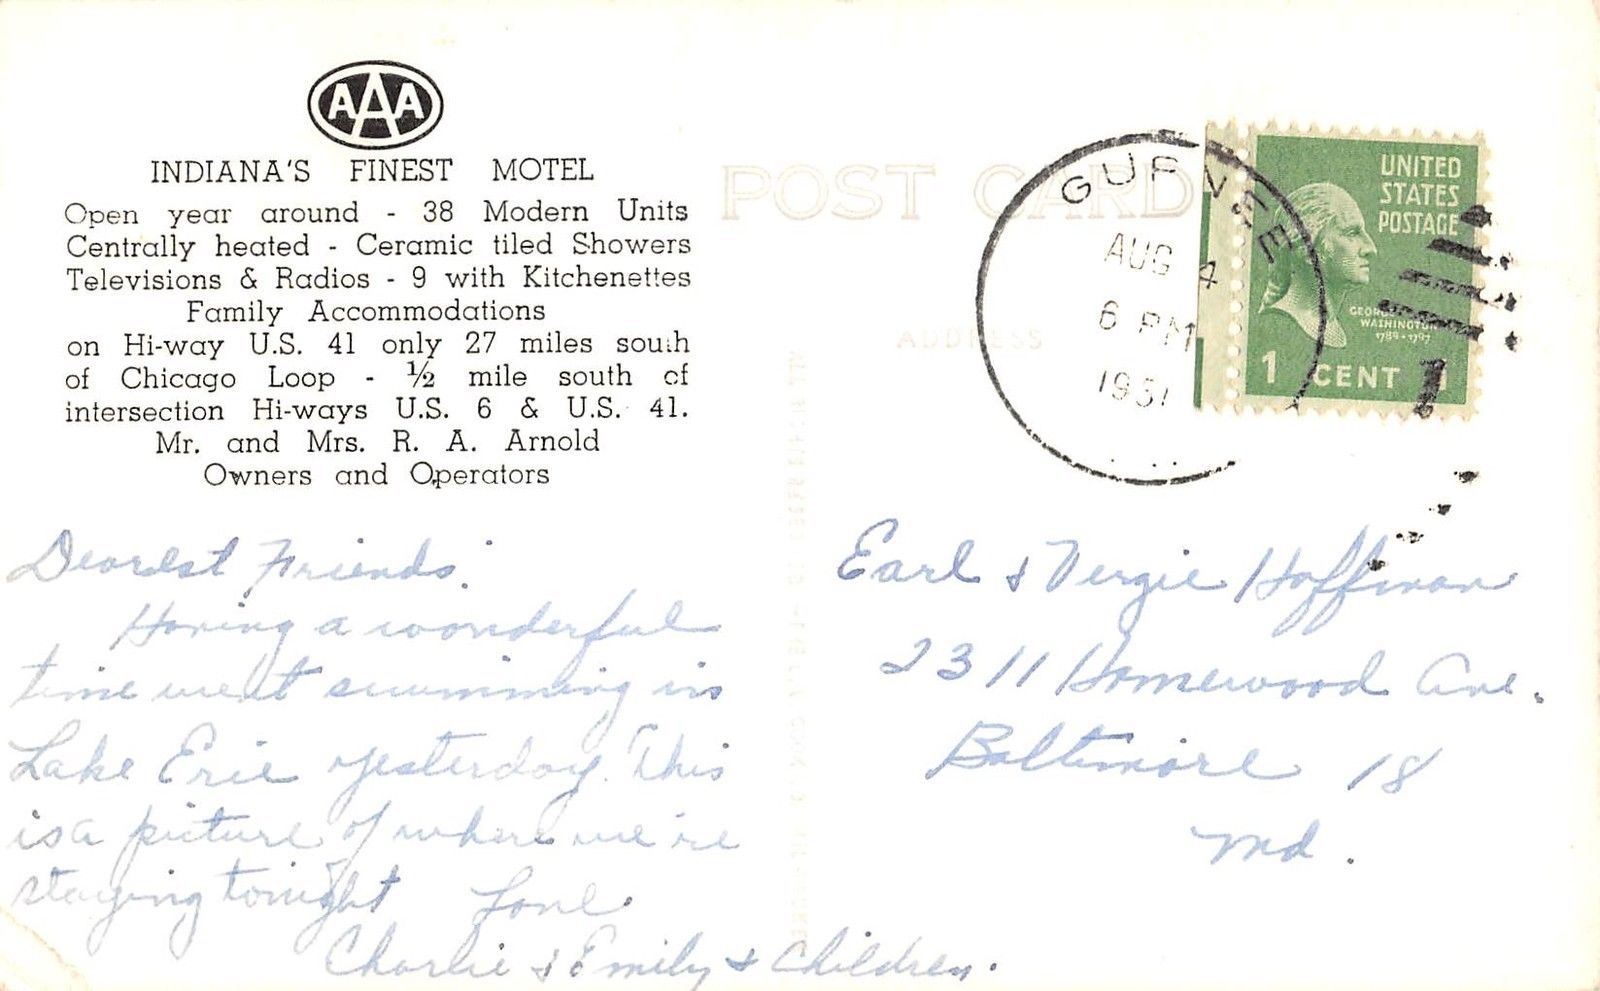 AAA
INDIANA'S FINEST MOTEL
Open year around - 38 Modern Units
Centrally heated - Ceramic tiled Showers
Televisions & Radios - 9 with Kitchenettes
Family Accommodations
on Hi-way U.S. 41 only 27 miles south
of Chicago Loop - ½ mile south of
intersection Hi-ways U.S. 6 & U.S. 41.
Mr. and Mrs. R. A. Arnold
Owners and Operators
Dearest Friends.
Having a wonderful
time went swimming in
Lake Erie yesterday. This
is a picture of where we're
staying tonight Love
Charlie & Emily & Children.
POST CARD
ADDRESS
GURNEE
AUG 4
6 PM
1951
UNITED
STATES
POSTAGE
GEORGE
WASHINGTON
1789-1797
1 CENT 1
Earl & Vergie Hoffman
2311 Homewood Ave.
Baltimore 18
Md.